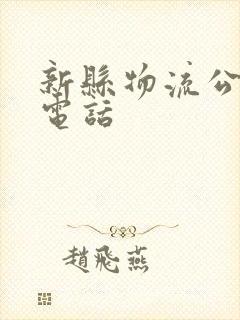 新縣物流公
電話
趙飛燕